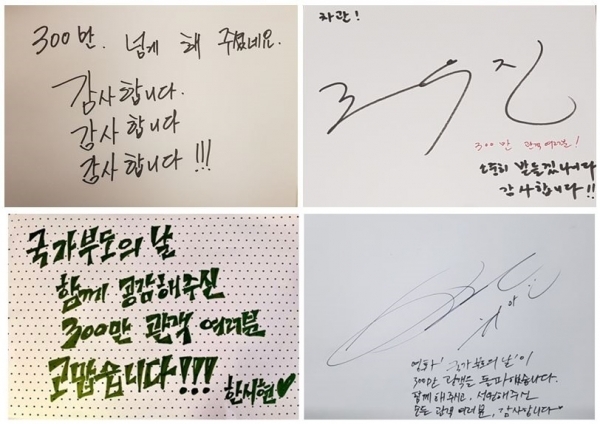 300만. 넘게 해 주셨네요.
감사합니다.
감사합니다
감사합니다!!!
차관!
조우진
300만 관객 여러분!
소중히 받들겠나이다
감사합니다!!
국가부도의 날
함께 공감해주신
300만 관객 여러분
고맙습니다!!!
한시현♥
영화! '국가부도의 날'이
300만 관객을 돌파했습니다.
함께 해주시고, 성원해주신
모든 관객 여러분, 감사합니다♡